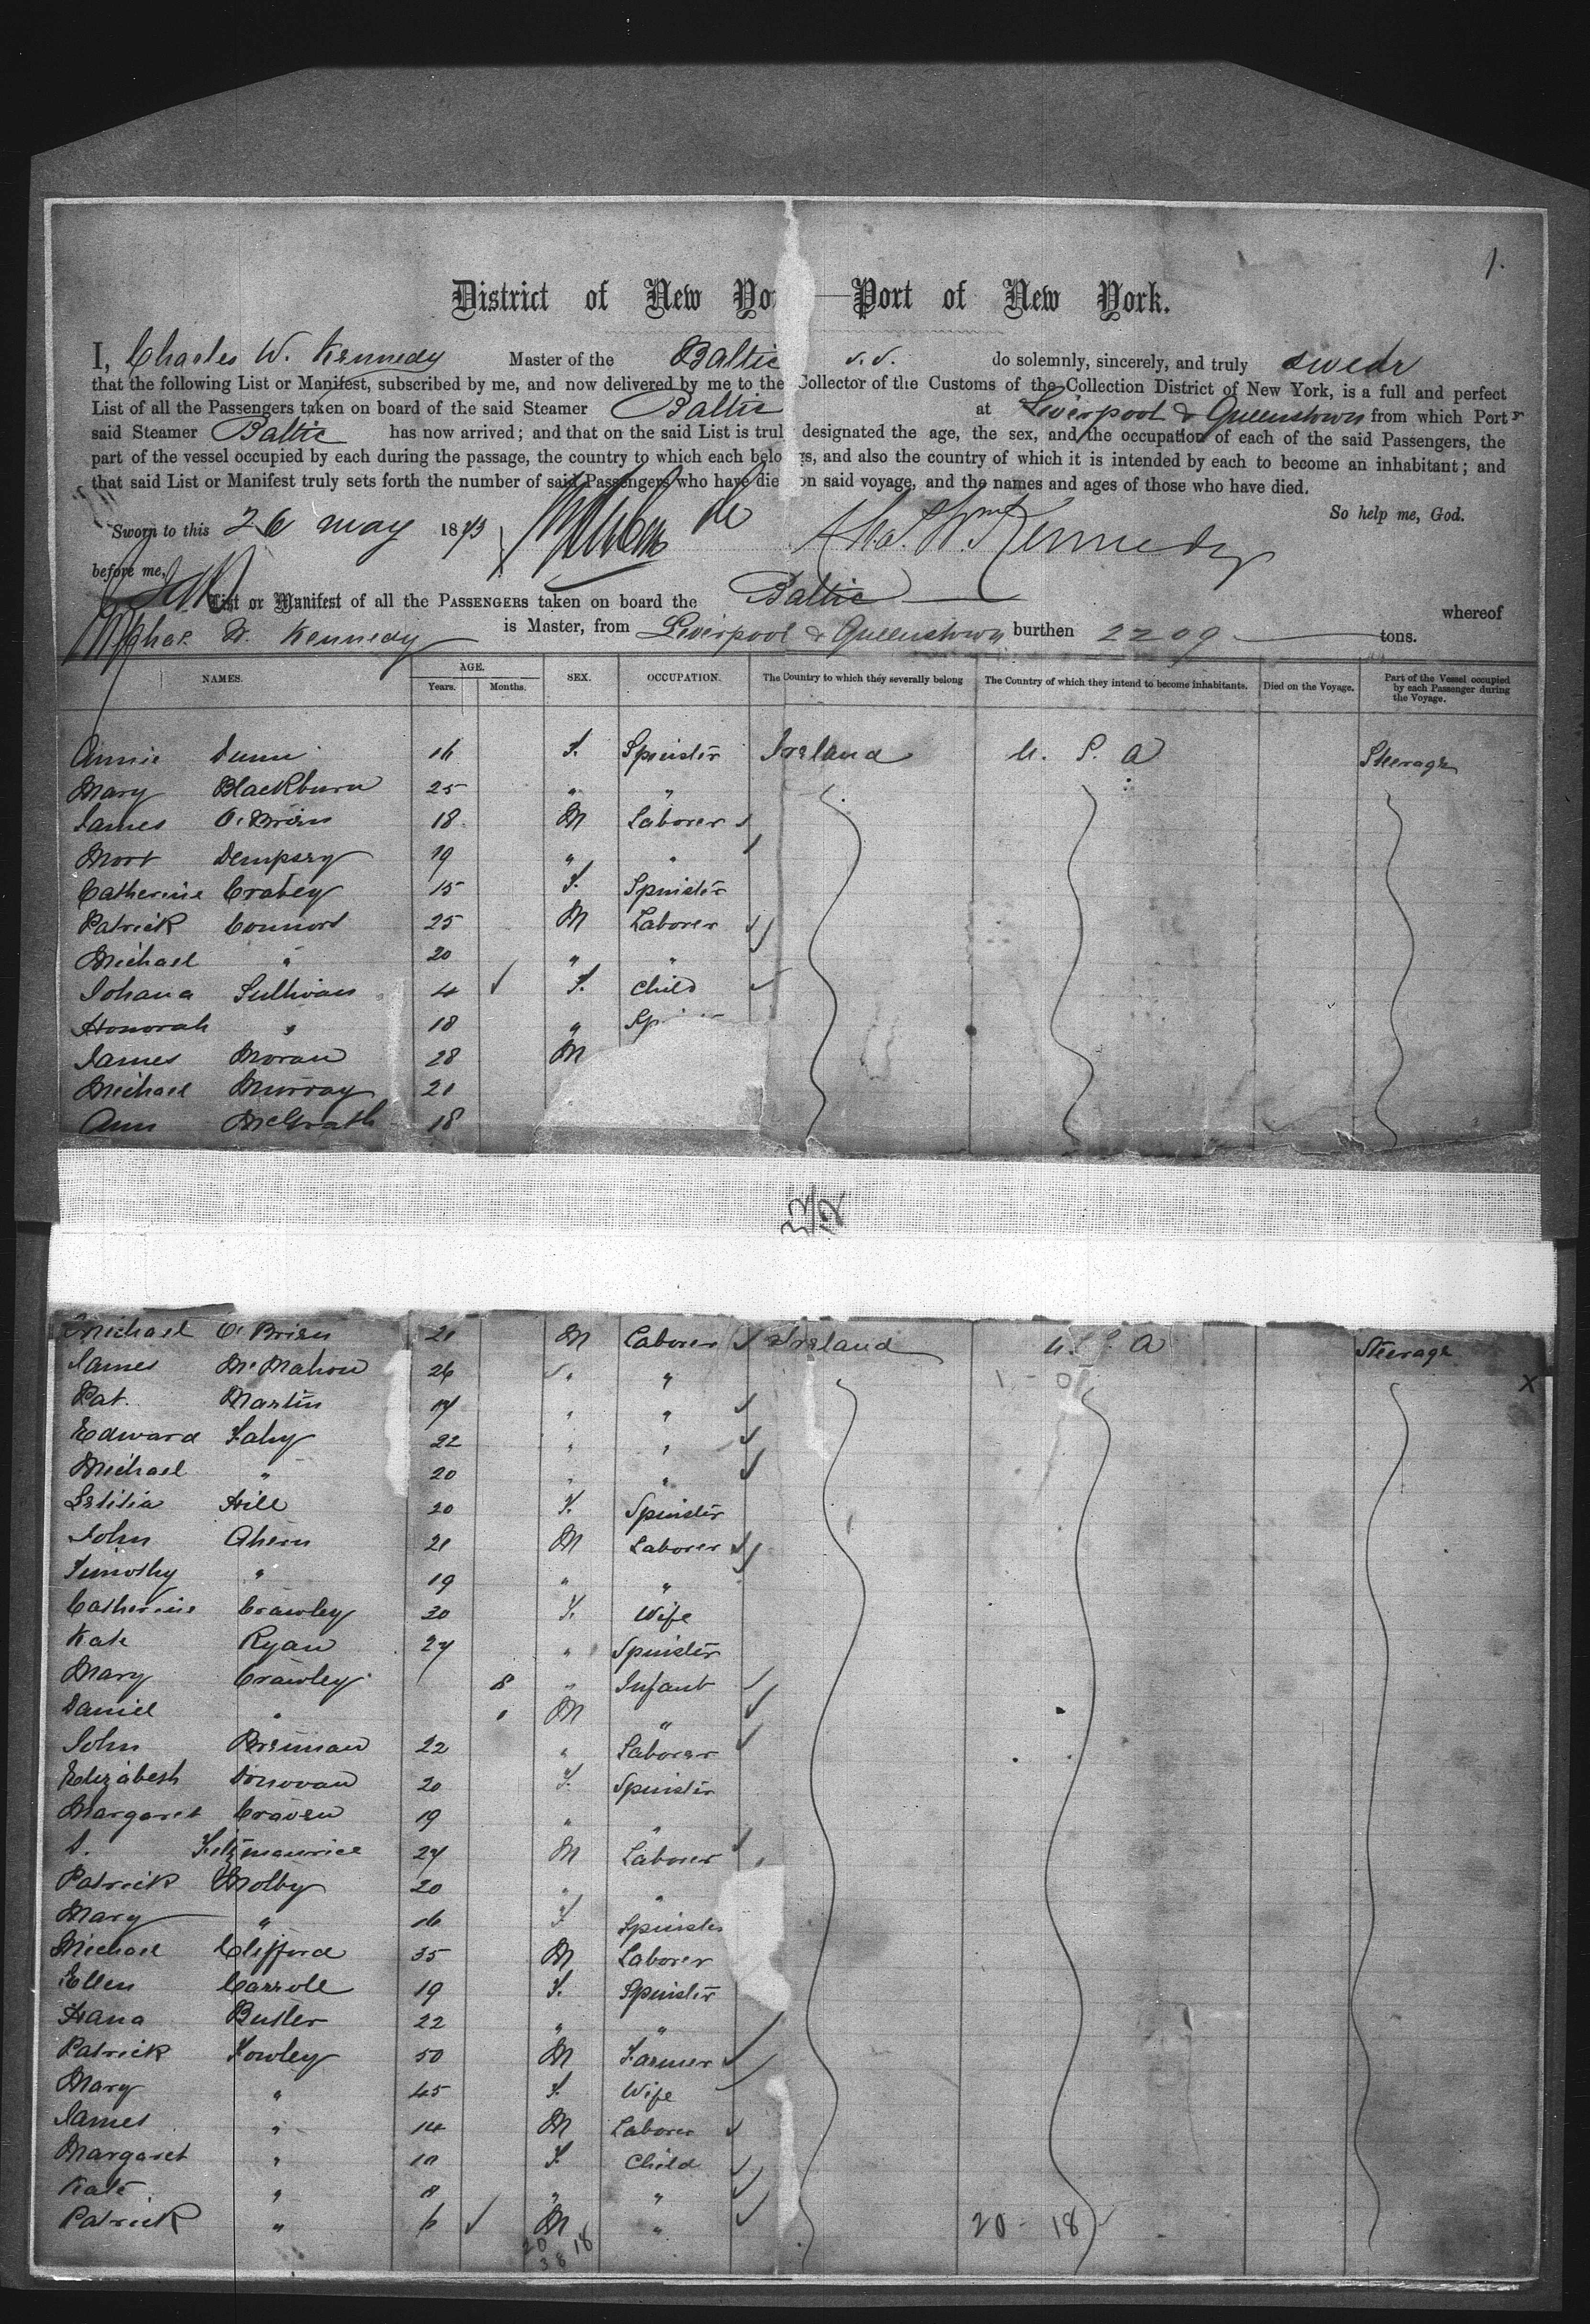 1.
District of New Yo — Port of New York.
I, Charles W. Kennedy Master of the Baltic s.s. do solemnly, sincerely, and truly swear
that the following List or Manifest, subscribed by me, and now delivered by me to the Collector of the Customs of the Collection District of New York, is a full and perfect
List of all the Passengers taken on board of the said Steamer Baltic at Liverpool & Queenstown from which Port s
said Steamer Baltic has now arrived; and that on the said List is trul designated the age, the sex, and the occupation of each of the said Passengers, the
part of the vessel occupied by each during the passage, the country to which each belo gs, and also the country of which it is intended by each to become an inhabitant; and
that said List or Manifest truly sets forth the number of said Passengers who have die on said voyage, and the names and ages of those who have died.
So help me, God.
Sworn to this 26 May 1873 Chas. Wm Kennedy
before me,
List or Manifest of all the PASSENGERS taken on board the Baltic whereof
Chas. W. Kennedy is Master, from Liverpool & Queenstown burthen 2209 tons.
NAMES. AGE. Years. Months. SEX. OCCUPATION. The Country to which they severally belong The Country of which they intend to become inhabitants. Died on the Voyage. Part of the Vessel occupied by each Passenger during the Voyage.
Annie Dunn 16 F. Spinster Ireland U. S. A Steerage
Mary Blackburn 25 " "
James O'Brien 18 M Laborer
Mort Dempsey 19 " "
Catherine Crabey 15 F. Spinster
Patrick Connors 25 M Laborer
Michael " 20 " "
Johana Sullivan 4 F. Child
Honorah " 18 "
James Moran 28 M
Michael Murray 21
Ann McGrath 18
Michael O'Brien 21 M Laborer Ireland U.S. A Steerage
James McMahon 26 " "
Pat. Martin 17 " "
Edward Fahy 22 " "
Michael " 20 " "
Letitia Hill 20 F. Spinster
John Ahern 21 M Laborer
Timothy " 19 " "
Catherine Crawley 30 F. Wife
Kate Ryan 27 " Spinster
Mary Crawley 8 " Infant
Daniel " " M "
John Brennan 22 " Laborer
Elizabeth Donovan 20 F. Spinster
Margaret Craven 19 " "
D. Fitzmaurice 27 M Laborer
Patrick Molby 20 " "
Mary " 16 F Spinster
Michael Clifford 35 M Laborer
Ellen Carroll 19 F. Spinster
Hana Butler 22 " "
Patrick Fowley 50 M Farmer
Mary " 45 F. Wife
James " 14 M Laborer
Margaret " 10 F. Child
Kate " 8 " "
Patrick " 6 M " 20 - 18
20 18
38